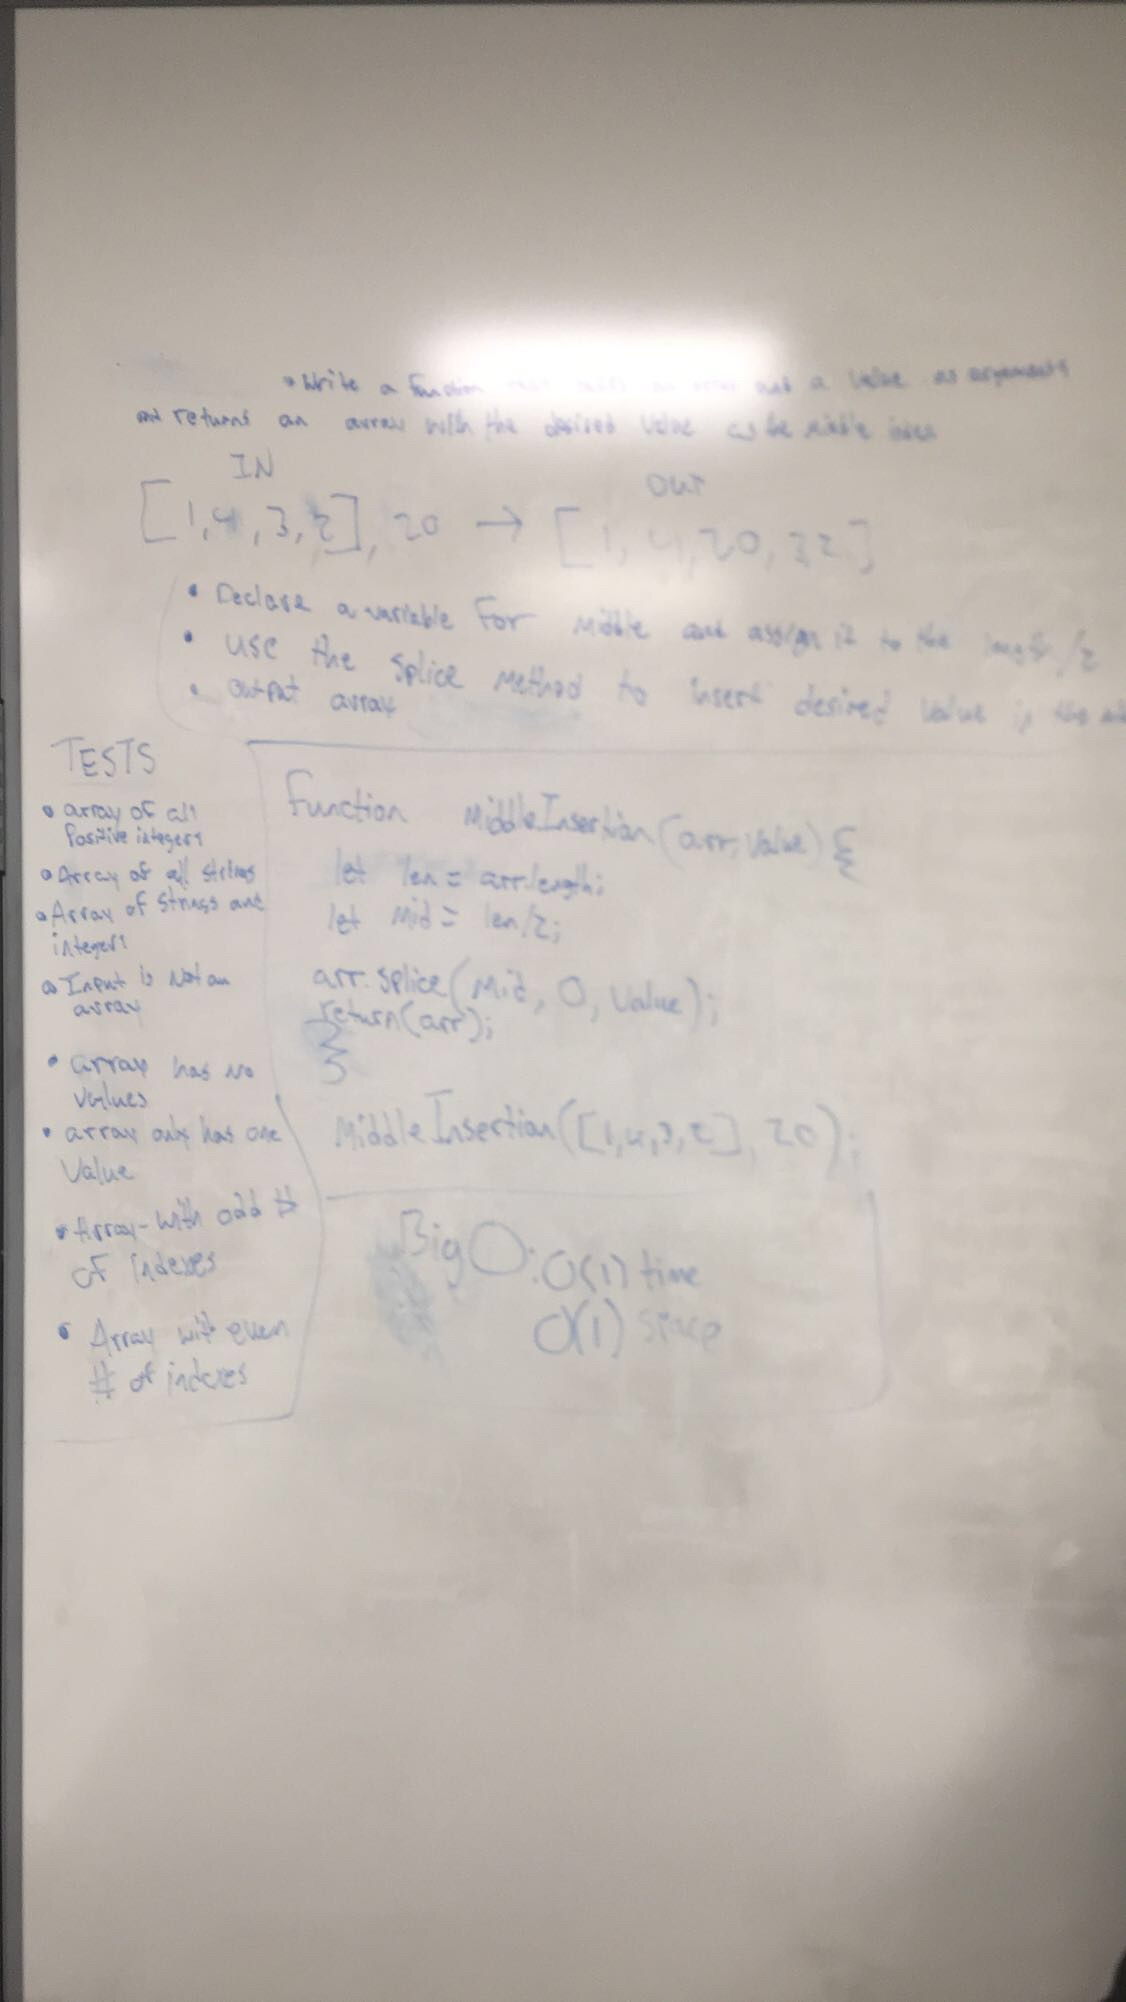 • Write a function and a value as arguments
and returns an array with the desired value as the middle index
IN
OUT
[1,4,3,2], 20 → [1, 4, 20, 3 2]
• Declare a variable for middle and assign it to the length/2
• use the splice method to insert desired value in the
• output array
TESTS
• array of all
Positive integers
• Array of all strings
• Array of strings and
integers
• Input is not an
array
• array has no
values
• array only has one
Value
• Array-with odd #
of indexes
• Array with even
# of indexes
Function MiddleInsertion(arr, Value) {
let len = arr.length;
let Mid = len/2;
arr.splice(Mid, 0, Value);
return(arr);
}
MiddleInsertion([1,4,3,2], 20);
Big O: O(1) time
O(1) space